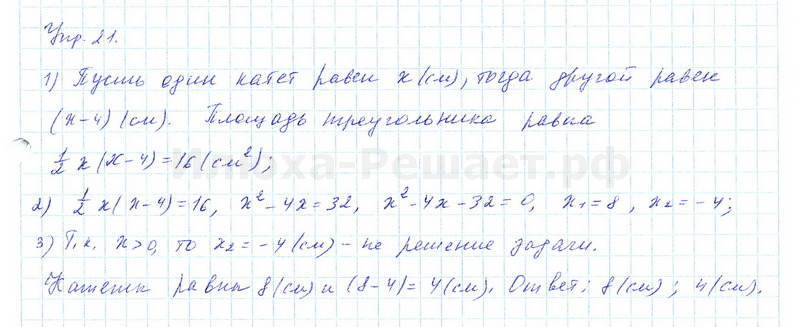 Упр. 21.
1) Пусть один катет равен x (см), тогда другой равен
(x-4) (см). Площадь треугольника равна
1/2 x (x-4) = 16 (см²);
2) 1/2 x (x-4) = 16, x² - 4x = 32, x² - 4x - 32 = 0, x₁ = 8, x₂ = -4;
3) Т.к. x > 0, то x₂ = -4 (см) - не решение задачи.
Катеты равны 8 (см) и (8-4) = 4 (см). Ответ: 8 (см); 4 (см).